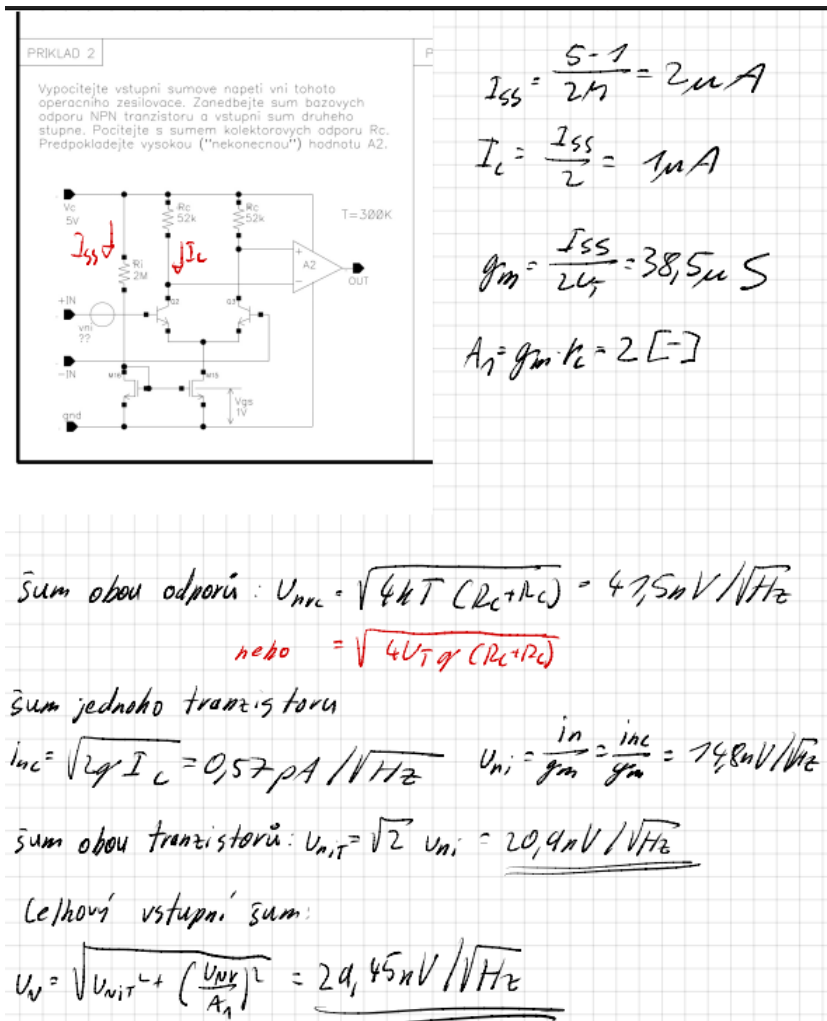 PRIKLAD 2
P
Vypocitejte vstupni sumove napeti vni tohoto
operacniho zesilovace. Zanedbejte sum bazovych
odporu NPN tranzistoru a vstupni sum druheho
stupne. Pocitejte s sumem kolektorovych odporu Rc.
Predpokladejte vysokou ("nekonecnou") hodnotu A2.
Vc
5V
Rc
52k
Rc
52k
T=300K
Iss
Ic
Ri
2M
A2
OUT
+IN
vni
??
Q2
Q3
-IN
M16
M15
Vgs
1V
gnd
Iss = (5-1)/2M = 2μA
Ic = Iss/2 = 1μA
gm = Iss/2U_T = 38,5μS
A1 = gm·rc = 2 [-]
šum obou odporů: Unrc = √(4kT (Rc+Rc)) = 41,5nV/√Hz
nebo = √(4U_T q (Rc+Rc))
šum jednoho tranzistoru
inc = √(2q Ic) = 0,57pA/√Hz Uni = in/gm = inc/gm = 14,8nV/√Hz
šum obou tranzistorů: UniT = √2 Uni = 20,9nV/√Hz
Celkový vstupní šum:
UN = √(UNiT² + (UNr/A1)²) = 29,45nV/√Hz